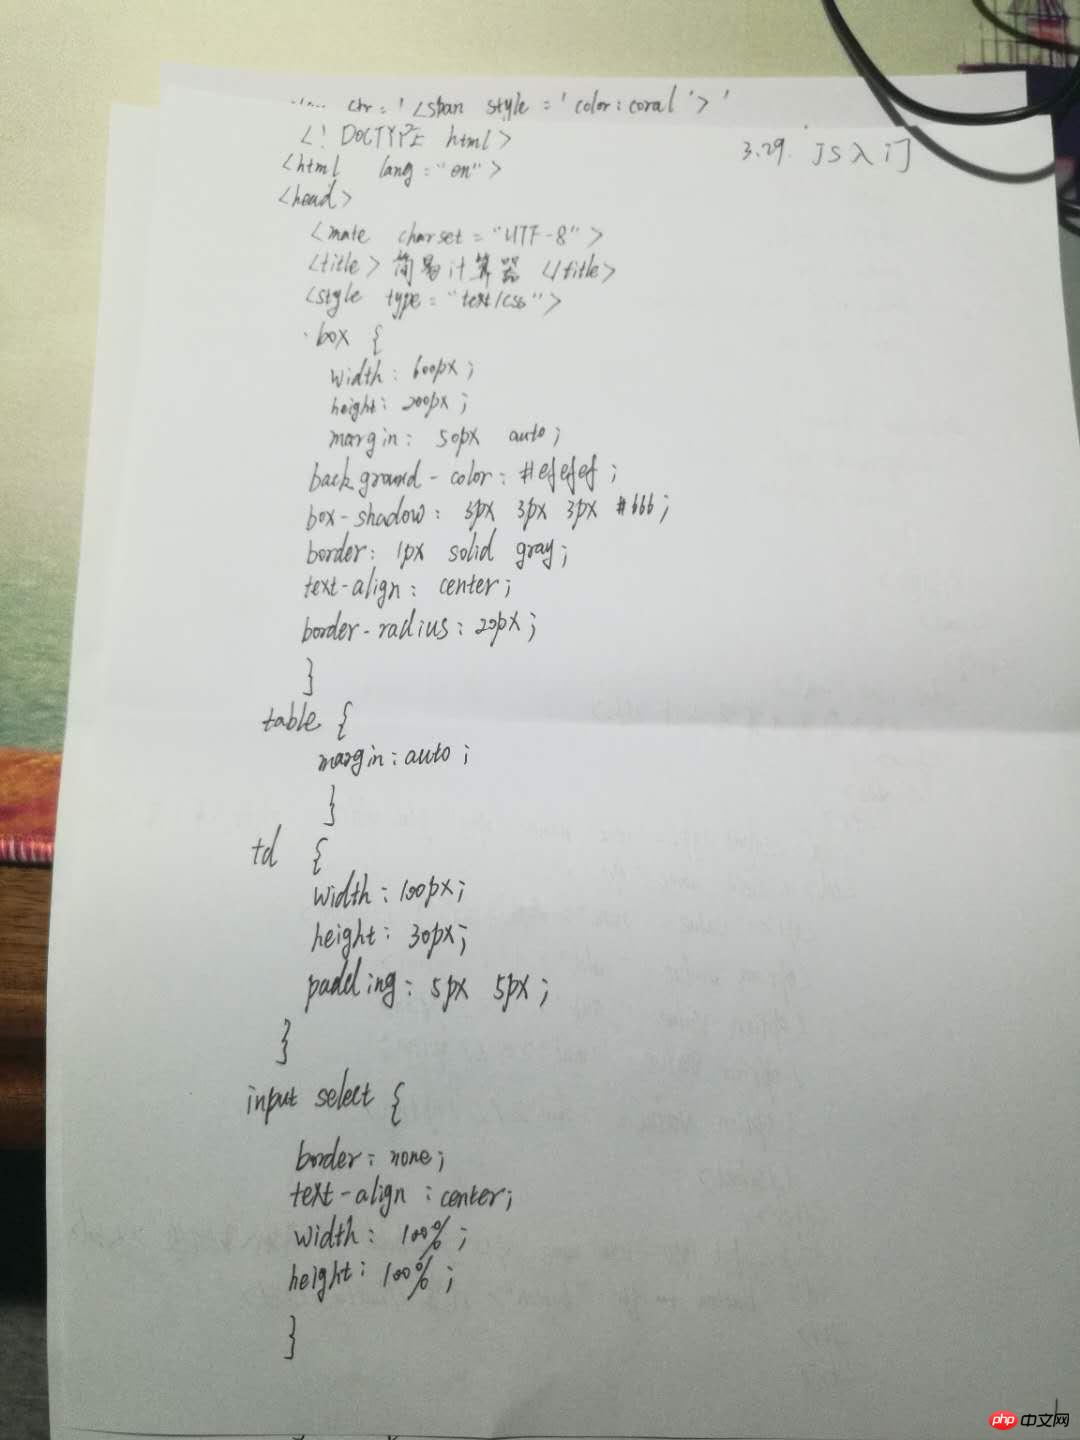 str = '<span style = 'color:coral'>'
<!DOCTYPE html>
3.29. JS入门
<html lang="en">
<head>
<mate charset="UTF-8">
<title>简易计算器</title>
<style type="text/css">
.box {
width: 600px;
height: 200px;
margin: 50px auto;
background-color: #efefef;
box-shadow: 3px 3px 3px #666;
border: 1px solid gray;
text-align: center;
border-radius: 20px;
}
table {
margin: auto;
}
td {
width: 100px;
height: 30px;
padding: 5px 5px;
}
input select {
border: none;
text-align: center;
width: 100%;
height: 100%;
}
php 中文网